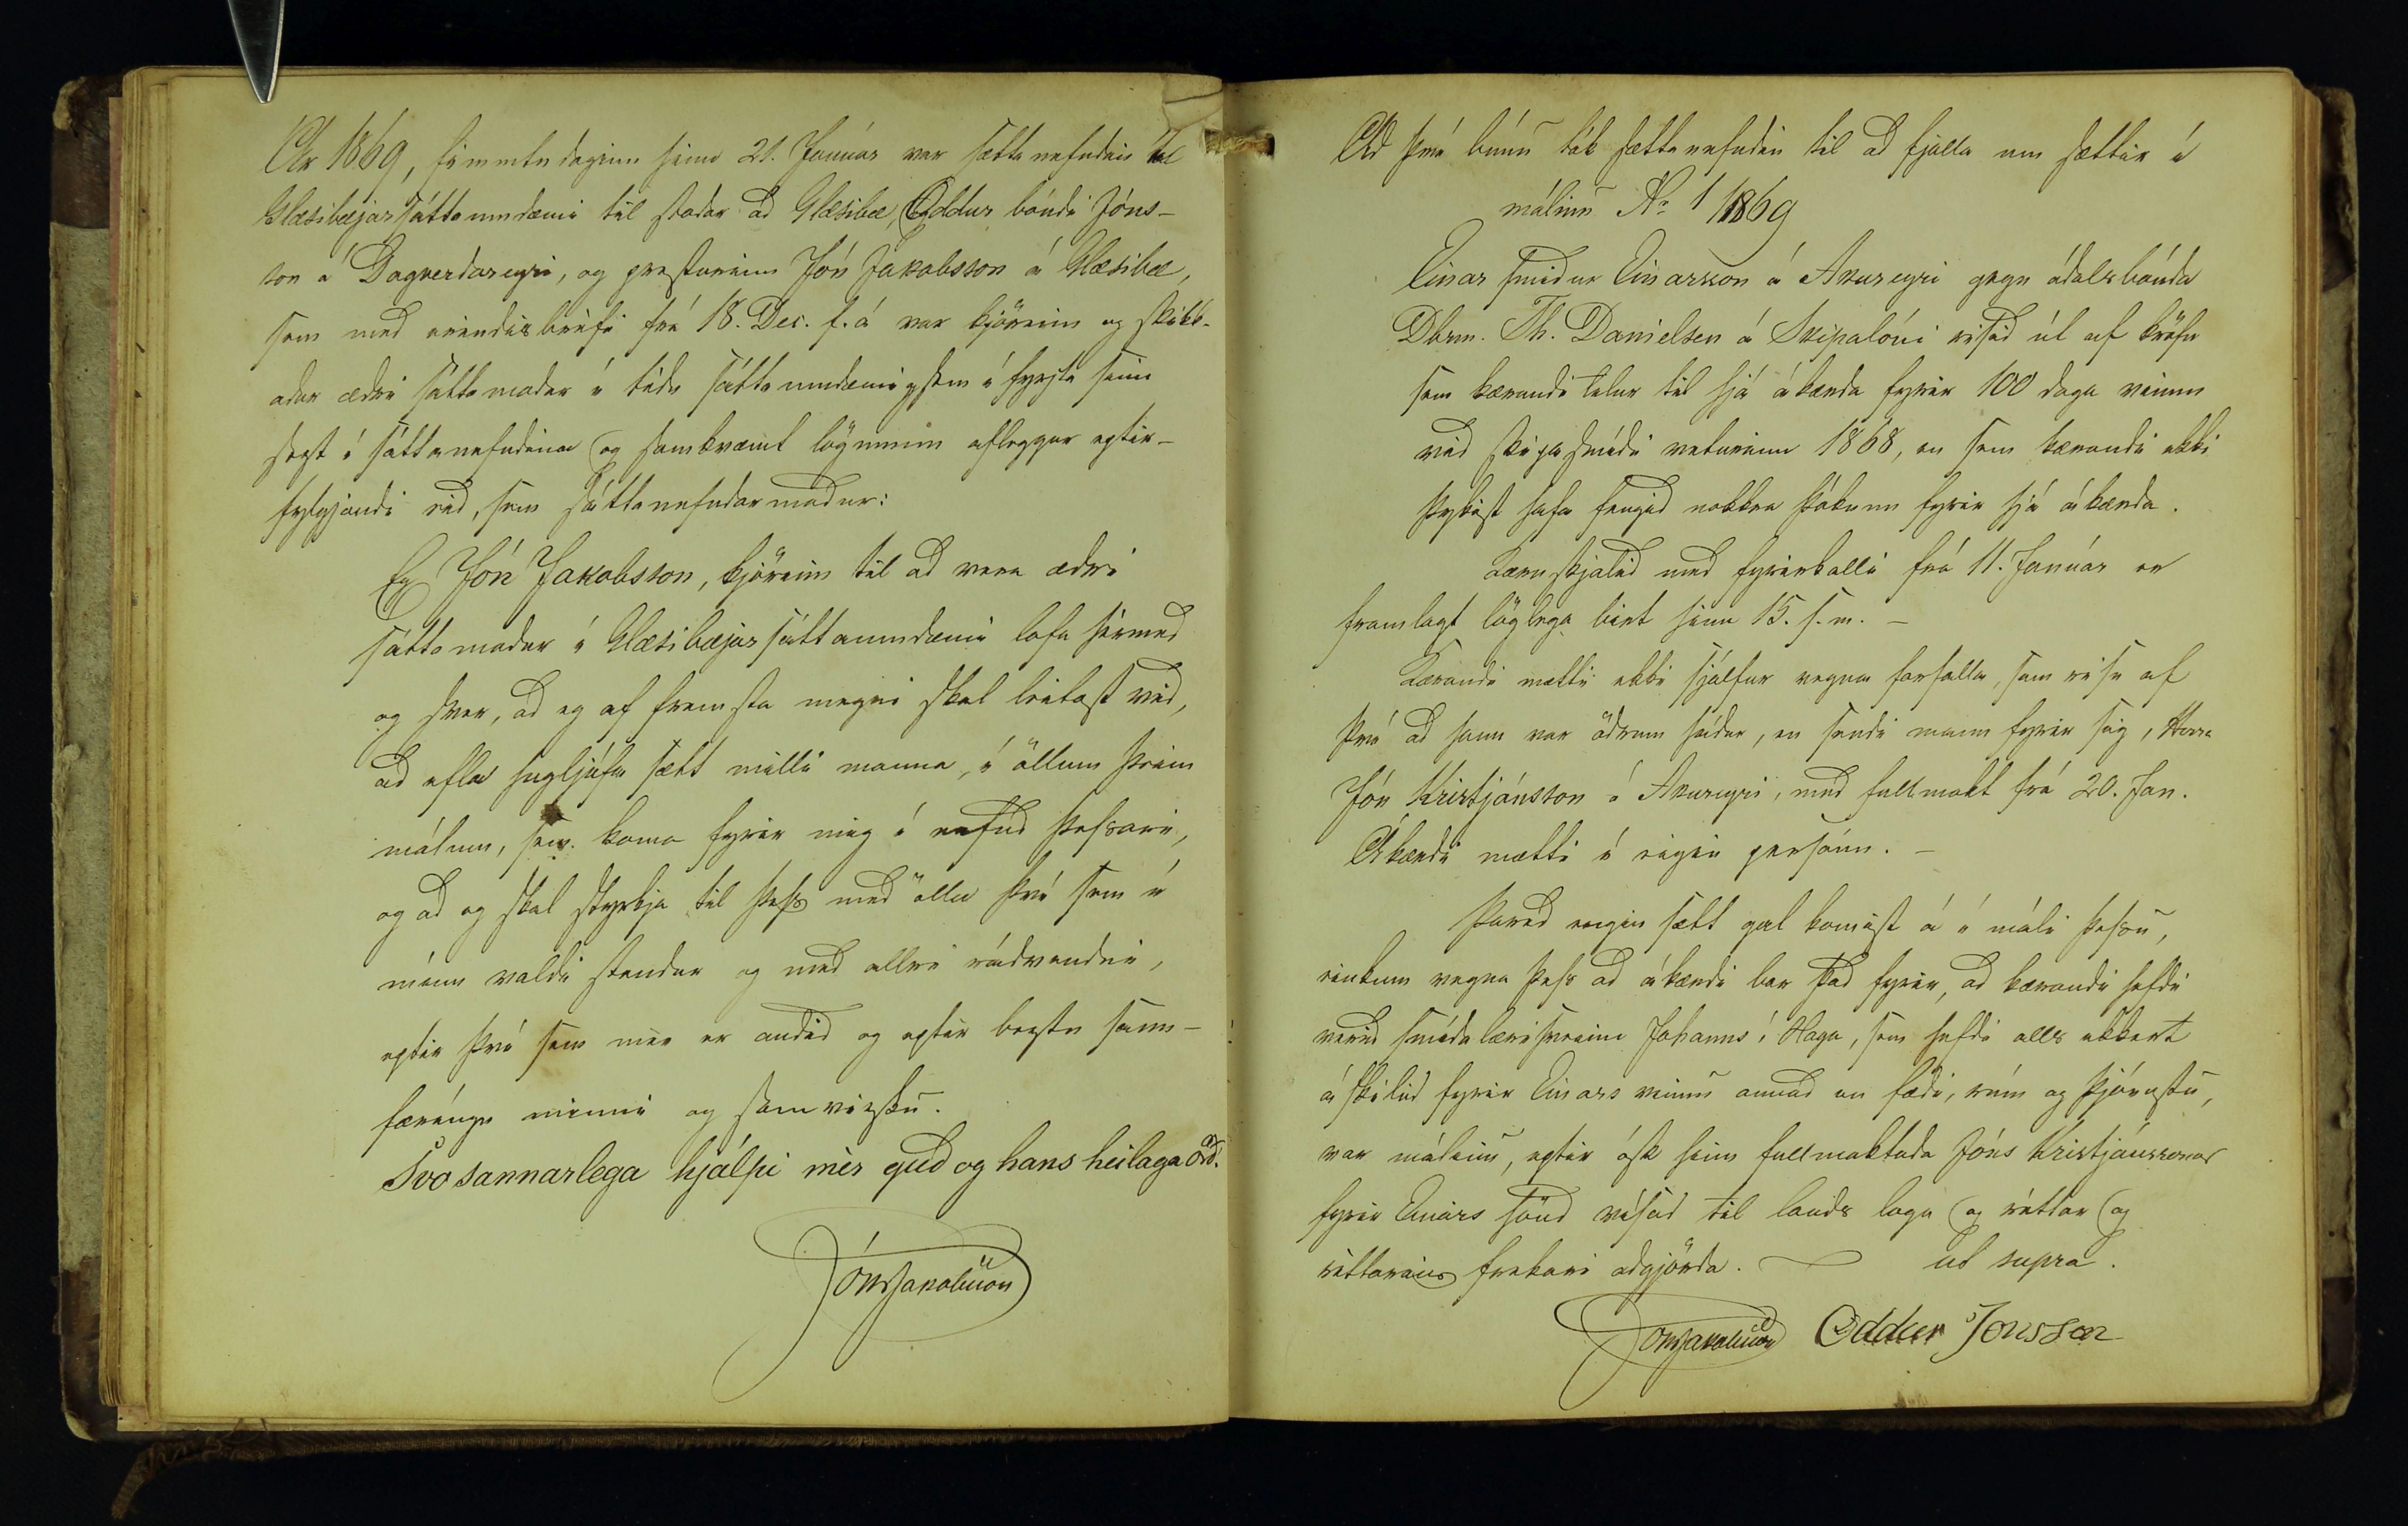 Ár 1869, fimmtudaginn hinn 21. Januar var sáttanefndin í
Glæsibæjar sáttaumdæmi til stadar ad Glæsibæ, Oddur bóndi Jóns-
son á Dagverdareyri, og presturinn Jón Jakobsson á Glæsibæ,
sem med erindisbréfi frá 18. Dec. f. á var kjörinn og skikk-
adur ædri sáttamadur í tédu sáttaumdæmi, sem í fyrsta sinn
sezt í sáttanefndina og samkvæmt lögunum afleggur eptir-
fylgjandi eid, sem sáttanefndarmadur:
Eg Jón Jakobsson, kjörinn til ad vera ædri
sáttamadur í Glæsibæjar sáttaumdæmi lofa hérmed
og sver, ad eg af fremsta megni skal leitast vid,
ad efla hugljúfa sátt milli manna, í öllum þeim
málum, sem koma fyrir mig í nefnd þessari,
og ad eg skal styrkja til þess med öllu því sem í
mínu valdi stendur og med allri rádvendni,
eptir því sem mér er audid og eptir beztu sann-
færíngu minni og samvizku.
Svo sannarlega hjálpi mér gud og hans heilaga ord.
Jón Jakobsson
Ad því búnu tók sættanefndin til ad fjalla um sættir í
málinu No 1 1869
Einar smidur Einarsson á Akureyri gegn ódalsbónda
Dbrm. Th. Danielsen á Skipalóni risid út af kröfu
sem kærandi telur til hjá ákærda fyrir 100 daga vinnu
vid skipasmidi veturinn 1868, en sem kærandi ekki
þykist hafa fengid nokkra þóknun fyrir hjá ákærda.
Kæruskjalid med fyrirkalli frá 11. Januar er
framlagt löglega birt hinn 15. s. m. –
Kærandi mætti ekki sjálfur vegna forfalla, sem risu af
því ad hann var ödrum hádur, en sendi mann fyrir sig, Herra
Jón Kristjánsson á Akureyri, med fullmakt frá 20. Jan.
Ákærdi mætti í eigin persónu. –
Þared engin sætt gat komist á í máli þessu,
einkum vegna þess ad ákærdi bar það fyrir, ad kærandi hefdi
verid smidalærisveinn Jóhanns í Haga, sem hefdi alls ekkert
áskilid fyrir Einars vinnu annad en fædi, rúm og þjónustu,
var málinu, eptir ósk hins fullmaktada Jóns Kristjánssonar
fyrir Einars hönd vísad til lands laga og réttar og
réttarins frekari adgjörda. ut supra.
Jón Jakobsson Oddur Jónsson